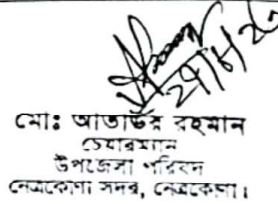 মোঃ আতাউর রহমান
চেয়ারম্যান
উপজেলা পরিষদ
নেত্রকোণা সদর, নেত্রকোণা।